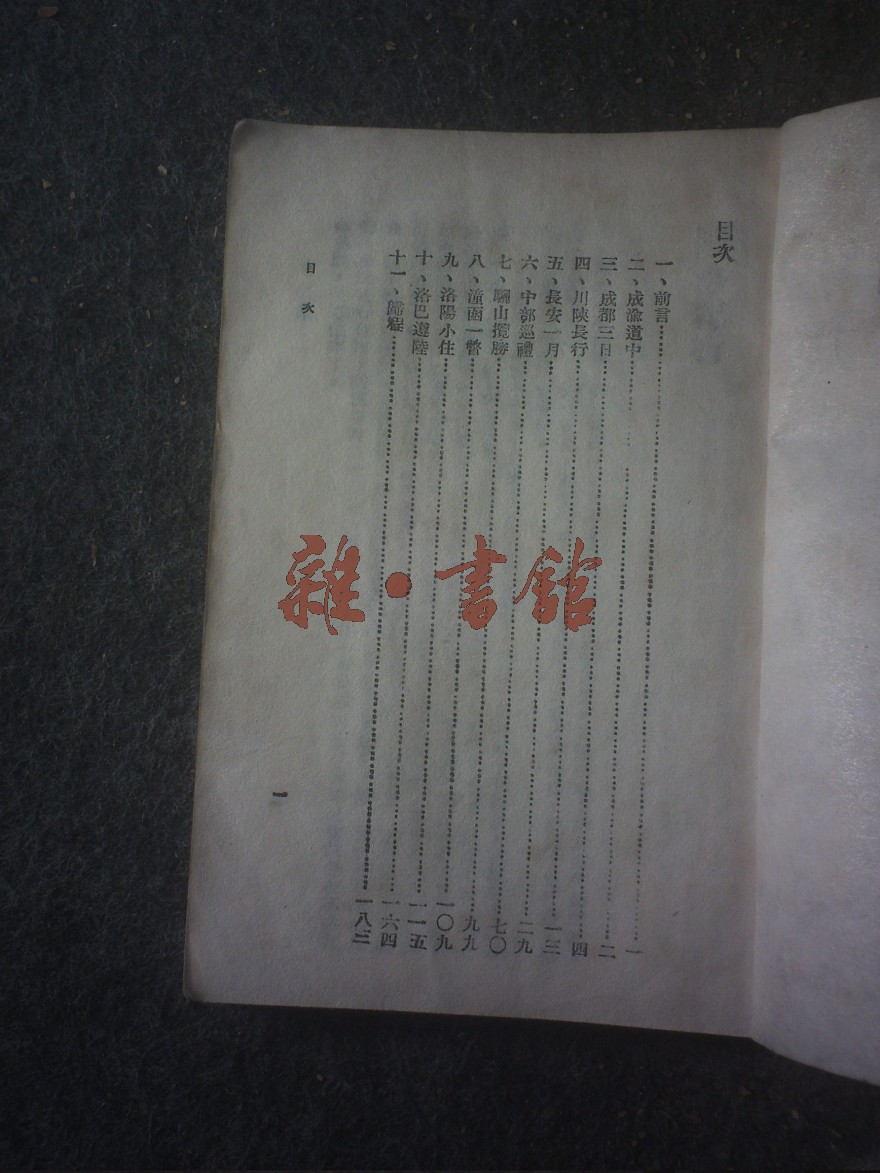 目次
一、前言……一
二、成渝道中……二
三、成都三日……四
四、川陝長行……一三
五、長安一月……二九
六、中部巡禮……七〇
七、驪山攬勝……九九
八、潼關一瞥……一〇九
九、洛陽小住……一一五
十、洛巴遵陸……一六四
十一、歸程……一八三
目次
一
雜·書館